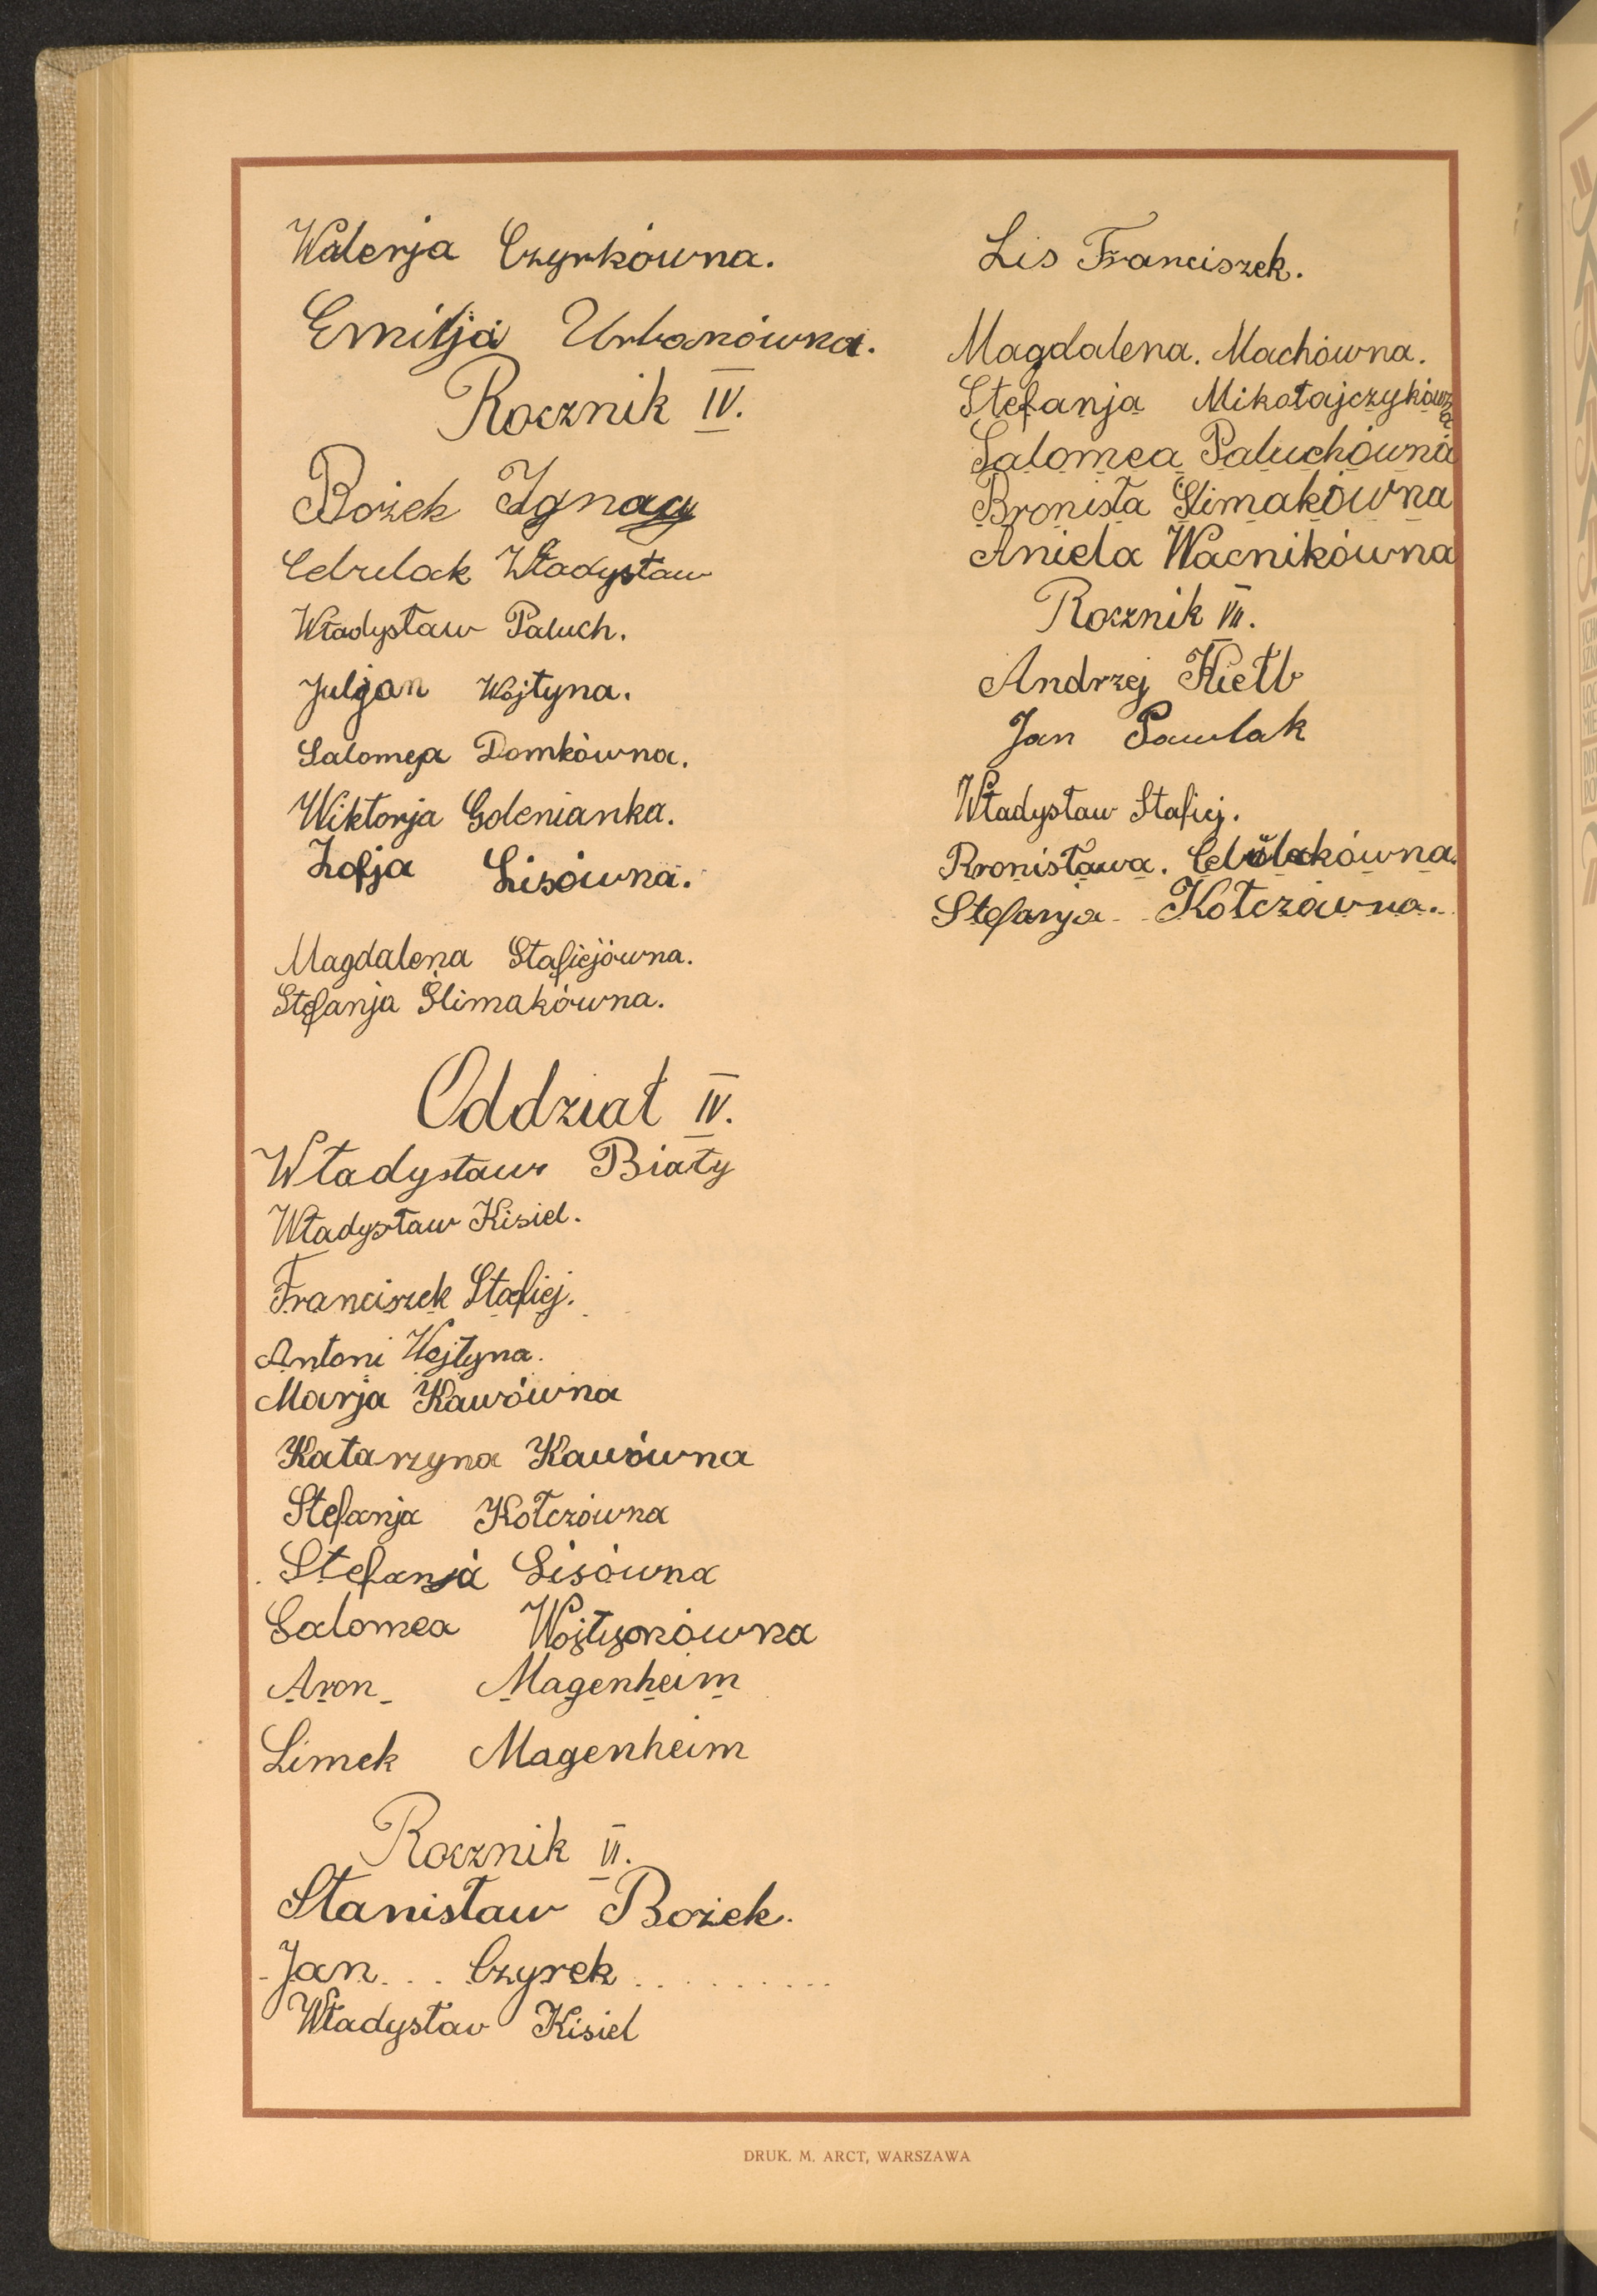 Walerja Czyrkówna.
Emilja Urbanówna.
Rocznik IV.
Bożek Ignacy
Cebulak Władysław
Władysław Paluch.
Juljan Wojtyna.
Salomeja Domkówna.
Wiktorja Golenianka.
Zofja Lisówna.
Magdalena Staficjówna.
Stefanja Ślimakówna.
Oddział IV.
Władysław Biały
Władysław Kisiel.
Franciszek Staficj.
Antoni Wojtyna.
Marja Kawówna
Katarzyna Kawówna
Stefanja Kołczówna
Stefanja Lisówna
Salomea Wojtyonówna
Aron Magenheim
Limek Magenheim
Rocznik VI.
Stanisław Bożek.
Jan Czyrek
Władysław Kisiel
Lis Franciszek.
Magdalena. Machówna.
Stefanja Mikołajczykówna
Salomea Paluchówna
Bronisła Ślimakówna
Aniela Wacnikówna
Rocznik VII.
Andrzej Kiełb
Jan Pawlak
Władysław Staficj.
Bronisława. Cebulakówna.
Stefanja Kołczówna.
DRUK. M. ARCT, WARSZAWA